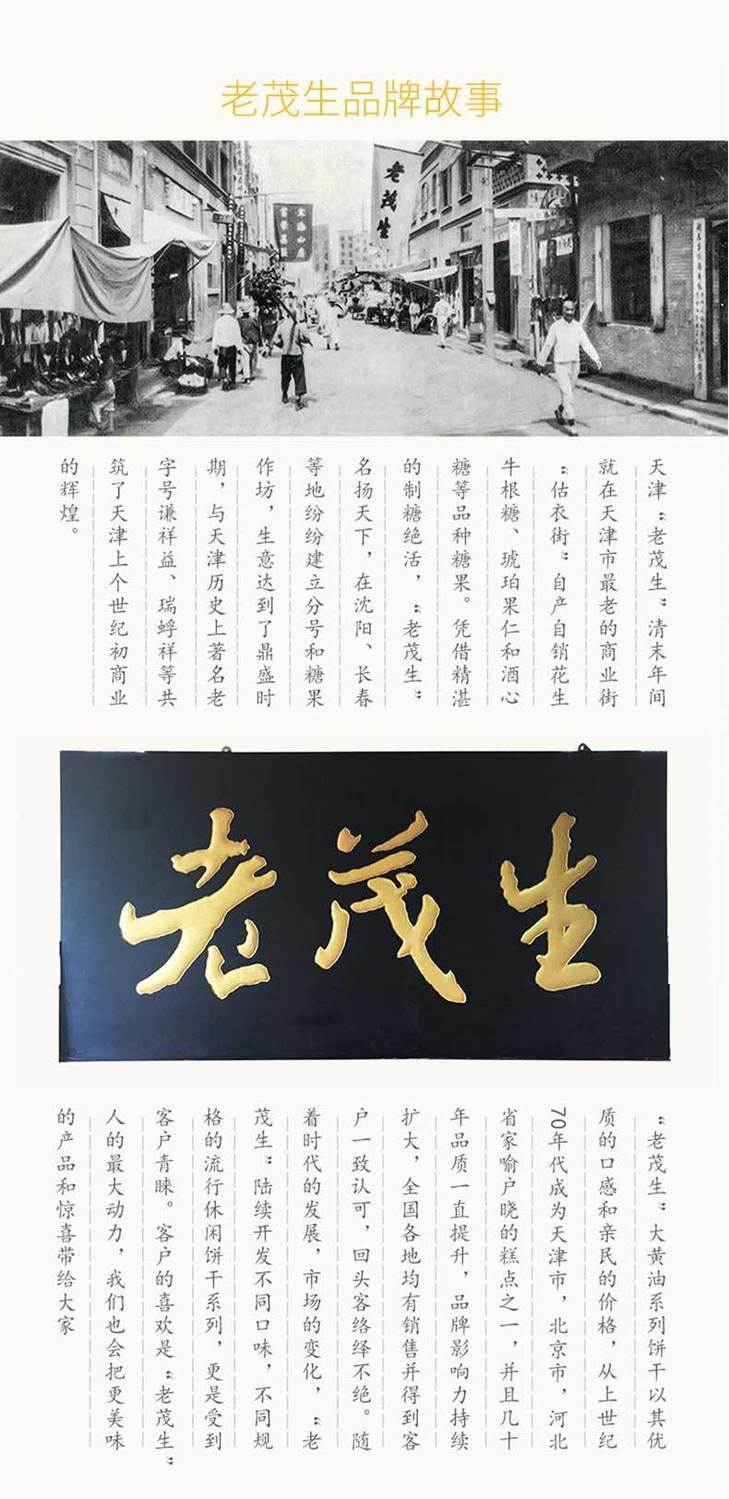 老茂生品牌故事
老茂生
天津“老茂生”清末年间
就在天津市最老的商业街
“估衣街”自产自销花生
牛根糖、琥珀果仁和酒心
糖等品种糖果。凭借精湛
的制糖绝活，“老茂生”
名扬天下，在沈阳、长春
等地纷纷建立分号和糖果
作坊，生意达到了鼎盛时
期，与天津历史上著名老
字号谦祥益、瑞蚨祥等共
筑了天津上个世纪初商业
的辉煌。
老茂生
“老茂生”大黄油系列饼干以其优
质的口感和亲民的价格，从上世纪
70年代成为天津市，北京市，河北
省家喻户晓的糕点之一，并且几十
年品质一直提升，品牌影响力持续
扩大，全国各地均有销售并得到客
户一致认可，回头客络绎不绝。随
着时代的发展，市场的变化，“老
茂生”陆续开发不同口味，不同规
格的流行休闲饼干系列，更是受到
客户青睐。客户的喜欢是“老茂生”
人的最大动力，我们也会把更美味
的产品和惊喜带给大家